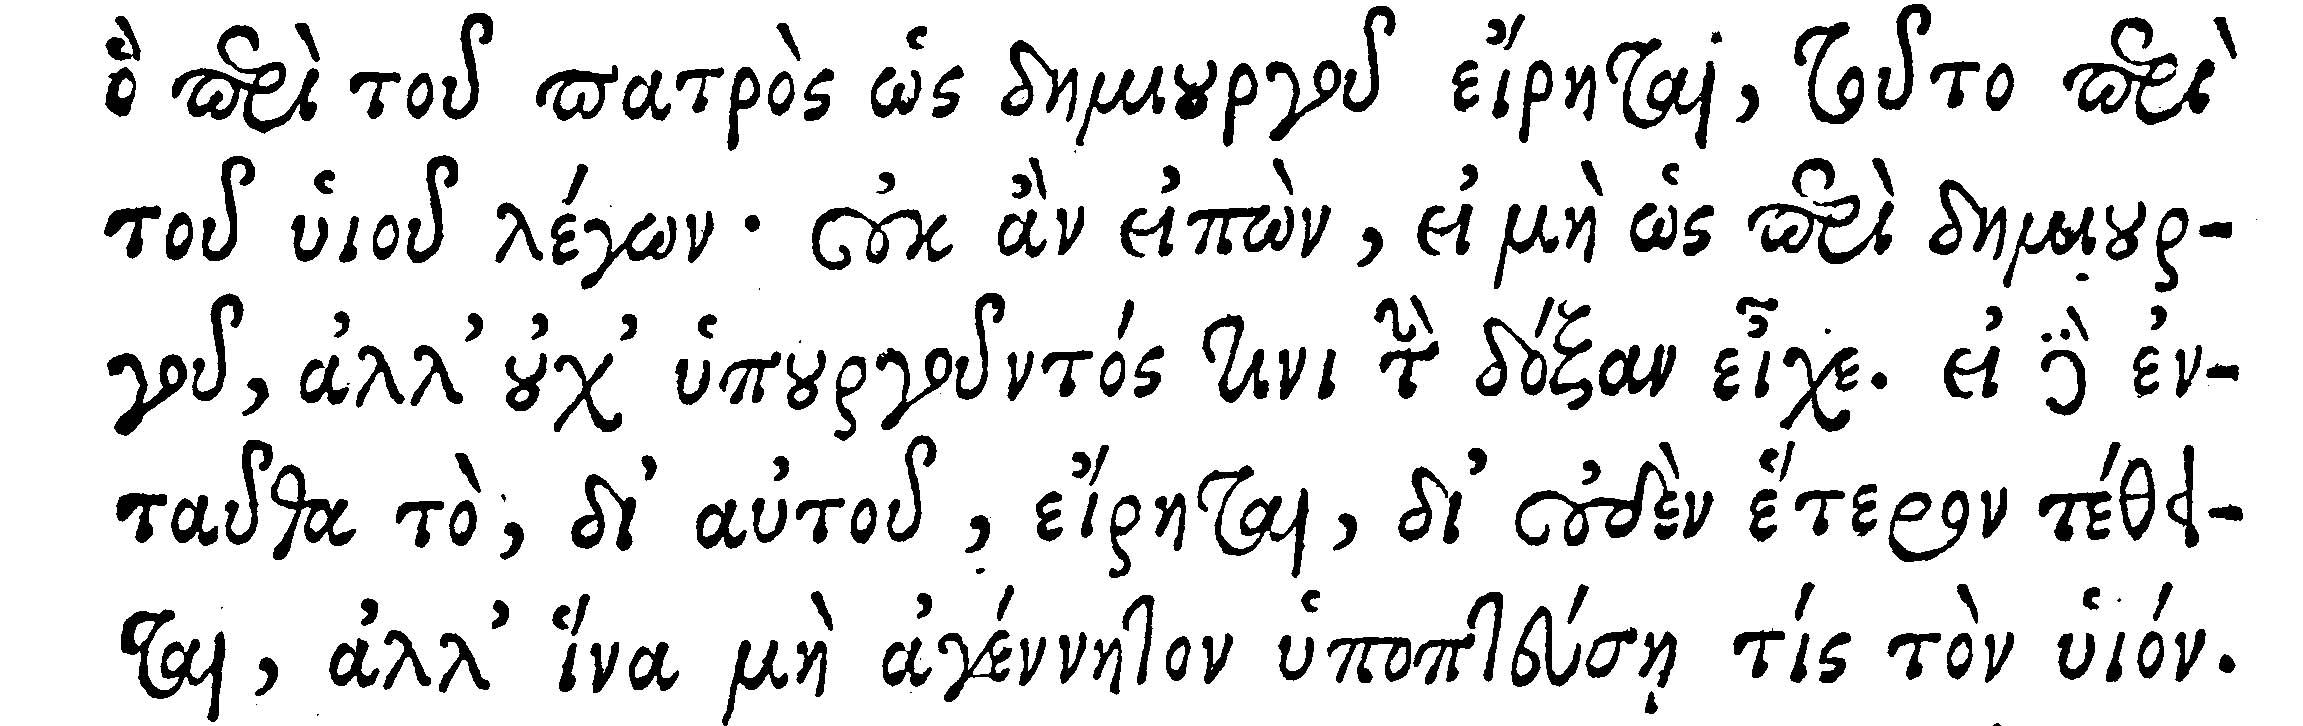 ὃ περὶ τοῦ πατρὸς ὡς δημιουργοῦ εἴρηται, τοῦτο περὶ
τοῦ υἱοῦ λέγων· οὐκ ἂν εἰπὼν, εἰ μὴ ὡς περὶ δημιουρ-
γοῦ, ἀλλ’ οὐχ’ ὑπουργοῦντός τινι τὴν δόξαν εἶχε. εἰ δὲ ἐν-
ταῦθα τὸ, δι’ αὐτοῦ, εἴρηται, δι’ οὐδὲν ἕτερον τέθει-
ται, ἀλλ’ ἵνα μὴ ἀγέννητον ὑποπτεύσῃ τίς τὸν υἱόν.